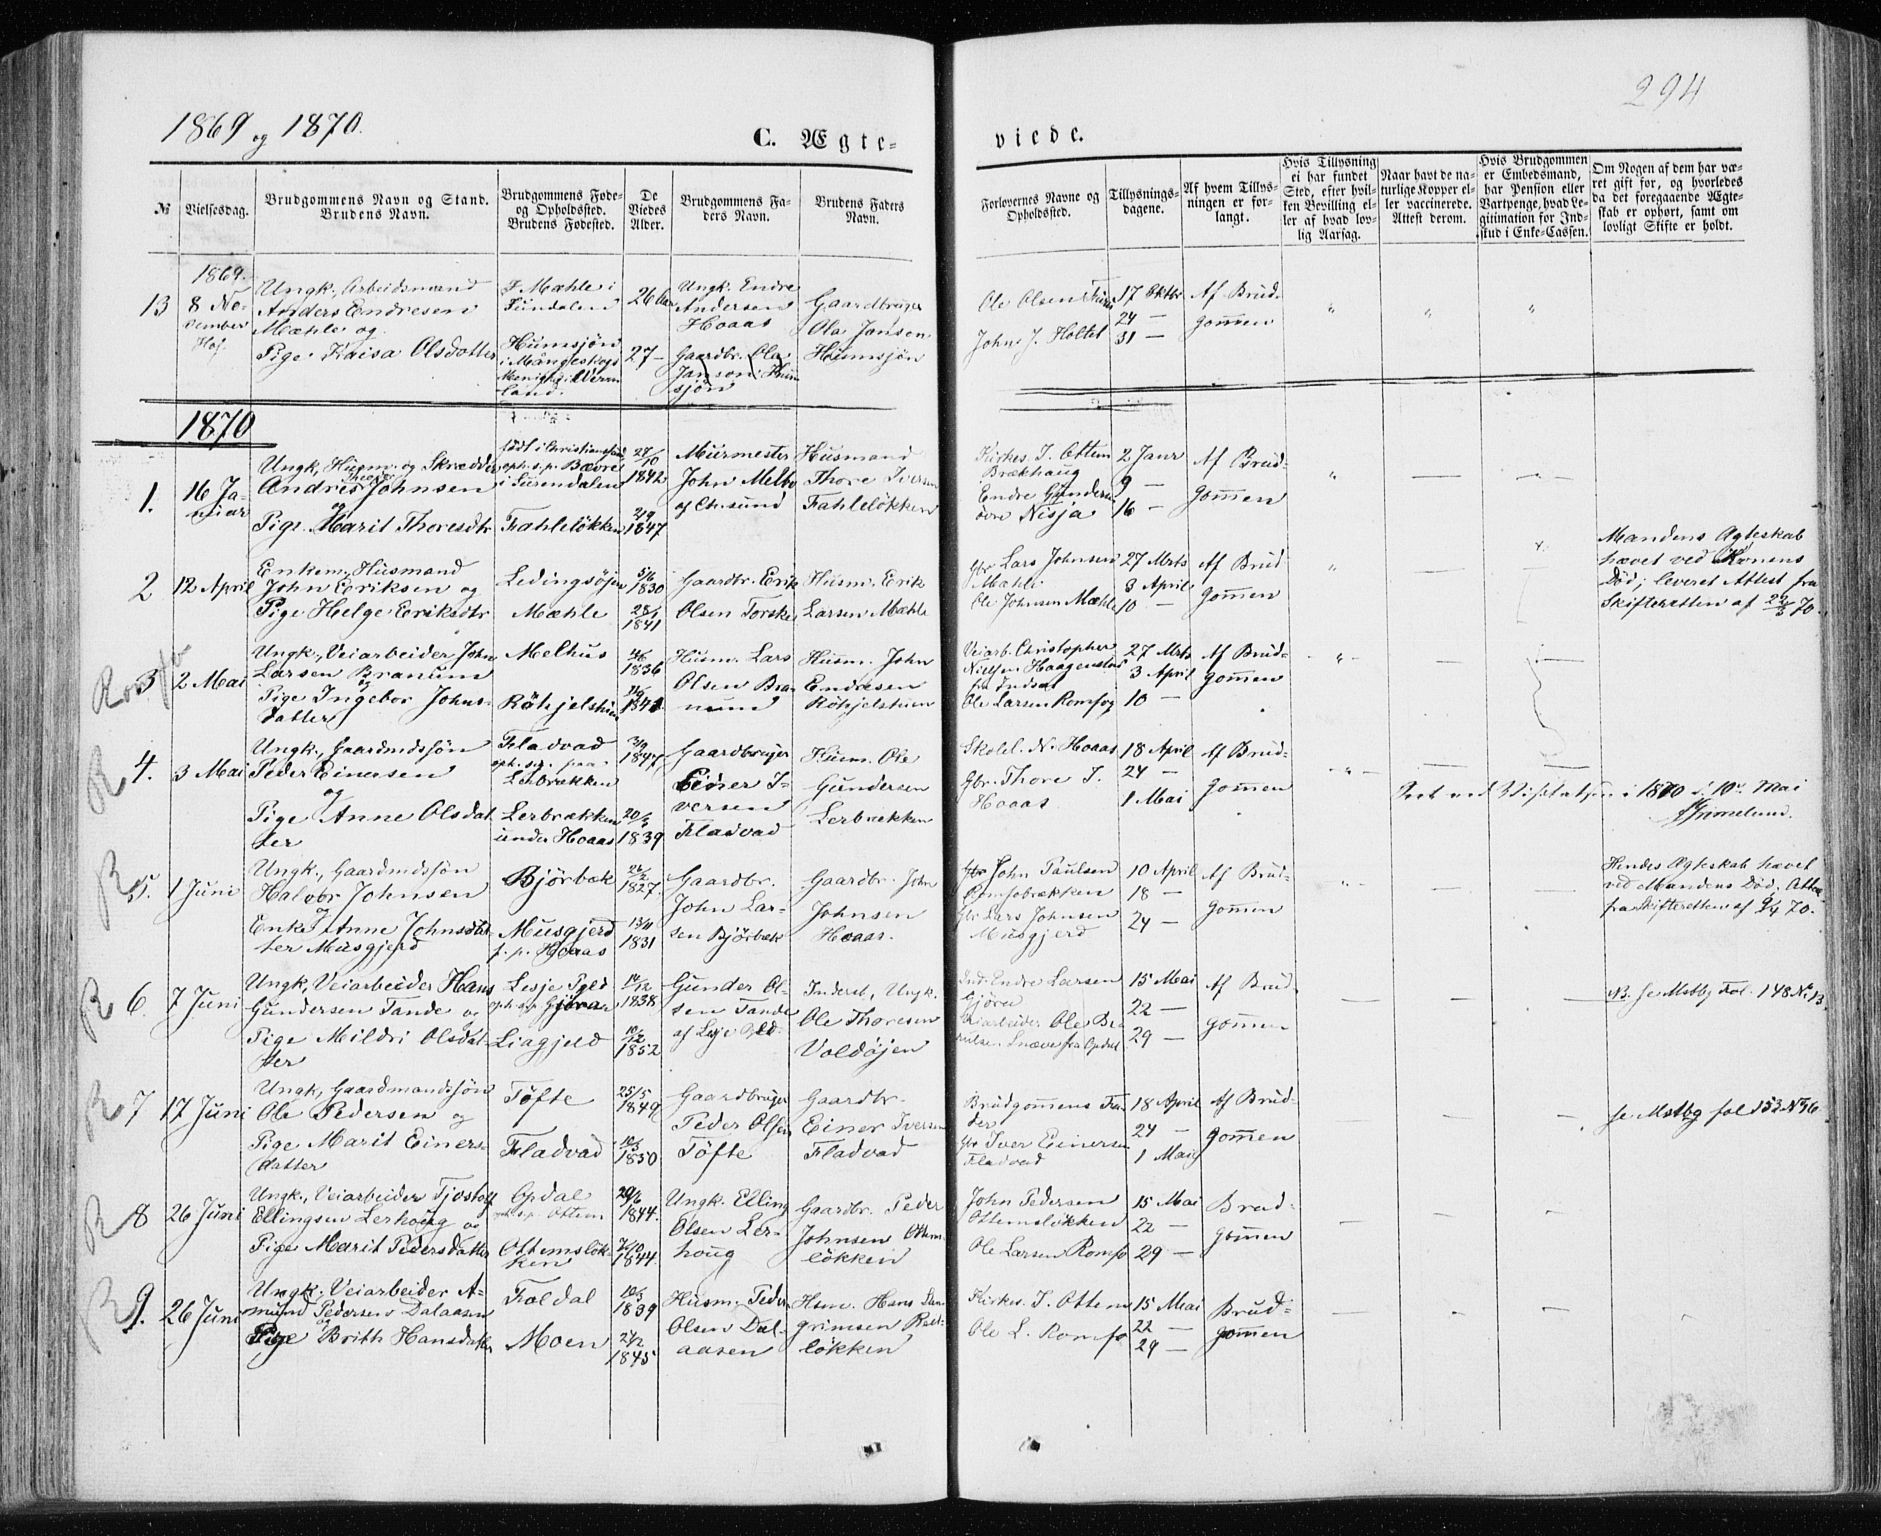 294
1869 og 1870.
C. Ægte-
viede.
№
Vielsesdag.
Brudgommens Navn og Stand.
Brudens Navn.
Brudgommens Føde-
og Opholdssted.
Brudens Fødested.
De
Viedes
Alder.
Brudgommens Fa-
ders Navn.
Brudens Faders
Navn.
Forlovernes Navne og
Opholdssted.
Tillysnings-
dagene.
Af hvem Tillys-
ningen er for-
langt.
Hvis Tillysning
ei har fundet
Sted, efter hvil-
ken Bevilling el-
ler af hvad lov-
lig Aarsag.
Naar havt de na-
turlige Kopper el-
ler vaccinerede.
Attest derom.
Hvis Brudgommen
er Embedsmand,
har Pension eller
Vartpenge, hvad Le-
gitimation for Ind-
skud i Enke-Cassen.
Om Nogen af dem har væ-
ret gift før, og hvorledes
da det foregaaende Ægte-
skab er ophørt, samt om
lovligt Skifte er holdt.
13
1869.
8 No-
vember
Høj.
Ungk., Arbeidsmand
Anders Endresen
Mæhle og
Pige Kaisa Olsdotter
F. Mæhle i
Sundalen
Humsjön
i Mångskogs
Menighed i Verm
land.
26 Aar
27 —
Ungk. Endre
Andersen
Hoaas
Gaardbr. Ola
Janson Hum
sjön
Gaardbruger
Ola Jansen
Humsjön
Ole Olsen
John J. Holtet
17 Oktbr
24 —
31 —
Af Brud-
gommen
1870
1.
16 Ja-
nuar
Ungk., Husm. og Skrædder
Andris Johnsen
og
Pige Marit Thoresdtr
født i Christiansund
oph. s. p. Bævre
i Surendalen
Fahleløkken
1842
1847
Murmester
John Melbo
af Ch.sund
Husmand
Thore Iversen
Fahleløkken
Kirkes. I. Ottem
Brækhaug
Endre Gundersen
øvre Nisja
2 Janr
9 —
16 —
Af Brud-
gommen
2
12 April
Enkem., Husmand
John Eriksen og
Pige Helge Eriksdtr
Ledingsøjen
Mæhle
5/6
1830
28/1
1841
Gaardbr. Erik
Olsen Torske
Husm. Erik
Larsen Mæhle
Gbr. Lars Johnsen
Mæhle
Ole Johnsen Mæhle
27 Mrts
3 April
10 —
Af Brud
gommen
Mandens Ægteskab
hævet ved Konens
Død; leveret Attest fra
Skifteretten af 22/3 70.
3
2 Mai
Ungk., Veiarbeider John
Larsen Branum
og
Pige Ingebor Johns-
datter
Melhus
Röhjelstuen
1836
Husm. Lars
Olsen Bra-
num
Husm. John
Endresen
Röhjelstuen
Veiarb. Christopher
Nielsen Haagenstad
fra Indset
Ole Larsen Romfog
27 Mrts
3 April
10 —
Af Brud-
gommen
R 4.
3 Mai
Ungk., Gaardmdssøn
Peder Einersen
og
Pige Anne Olsdat-
ter
Fladvad
oph. s. p. paa
Lerbrækken
Lerbrækken
under Hoaas
1847
20/3
1839
Gaardbruger
Einer I-
versen
Fladvad
Husm. Ole
Gundersen
Lerbrækken
Skolel. N. Hoaas
Gbr. Thore I.
Hoaas
18 April
24 —
1 Mai
Af Brud-
gommen
Seet ved Visitatsen i 1870 i 10de Mai
R 5.
1 Juni
Ungk., Gaardmdssøn
Halvor Johnsen
Enke Anne Johnsdat-
ter Musgjerd
Björbæk
Musgjerd
f. p. Hoaas
26/2
1827.
13/11
1831
Gaardbr.
John Lar-
sen Björbæk
Gaardbr. John
Johnsen
Hoaas.
Gbr John Paulsen
Romfobrækken
Gbr Lars Johnsen
Musgjerd
10 April
18 —
24 —
Af Brud-
gommen
Hendes Ægteskab hævet
ved Mandens Død; Attest
fra Skifteretten af 9/4 70.
R 6.
7 Juni
Ungk., Veiarbeider Hans
Gundersen Tande og
Pige Mildri Olsdat-
ter
Lesje Pgld
oph. s. p. Gjøra
Liagjeld
14/12
1838
10/2
1852
Gunder Ol-
sen Tande
af Lesje Pgld
Inderst, Ungk.
Ole Thoresen
Voldøjen
Ind. Endre Larsen
Gjøra
Veiarbeider Ole
Snæve fra Opdal
15 Mai
22 —
29 —
Af Brud
gommen
NB. se Mstbg Fol. 148 No 13.
R 7
17 Juni
Ungk., Gaardmandssøn
Ole Pedersen og
Pige Marit Einers-
datter
Töfte
Fladvad
25/5
1849
10/3
1850
Gaardbruger
Peder Olsen
Töfte
Gaardbr.
Einer Iversen
Fladvad
Brudgommens Fa-
der
Gbr Iver Einersen
Fladvad
18 April
24 —
1 Mai
Af Brud-
gommen
se Mstbg fol 153 No 36
R 8
26 Juni
Ungk., Veiarbeider Tjostolf
Ellingsen Lerhoug og
Pige Marit Pedersdatter
Opdal
oph. s. p. Ottem
Ottemsløk-
ken
20/6
1844.
7/10
1844.
Ungk. Elling
Olsen Ler-
houg
Gaardbr. Peder
Johnsen Ottem-
løkken
John Pedersen
Ottemsløkken
Ole Larsen Romfo
15 Mai
22 —
29 —
Brud-
gommen
R 9.
26 Juni
Ungk., Veiarbeider A-
mund Pedersen Dalaasen
og
Pige Brith Hansdatter
Foldal
Moen
10/3
1839
2/12
1845
Husm. Peder
Olsen Dal-
aasen
Husm. Hans Lan-
grimsen
løkken
Kirkes. I. Ottem
Ole L. Romfo
15 Mai
22 —
29 —
Brud-
gommen